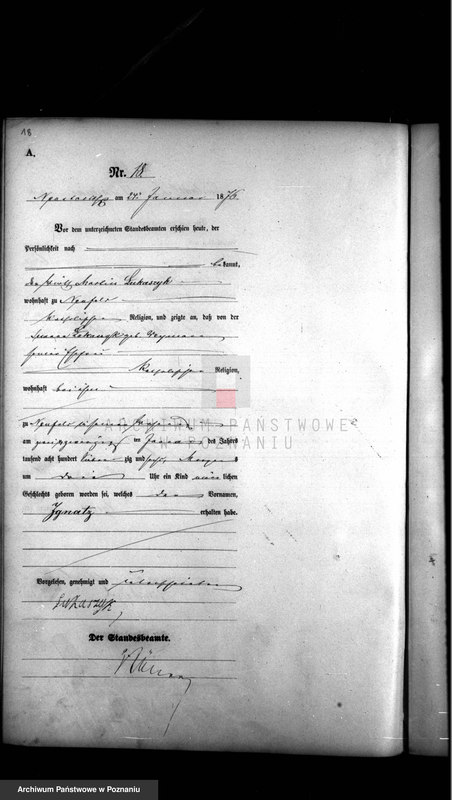 18
A.
Nr. 18
am 24. Januar 1876
Vor dem unterzeichneten Standesbeamten erschien heute, der
Persönlichkeit nach
bekannt,
der Wirth Martin Lukaszyk
wohnhaft zu Neufeld
katholischer Religion, und zeigte an, daß von der
geb.
seiner Ehefrau
katholischer Religion,
wohnhaft bei ihm
ARCHIWUM PAŃSTWOWE
W POZNANIU
zu Neufeld in seiner
am ten Januar des Jahres
tausend acht hundert sieben zig und sechs Morgens
um drei Uhr ein Kind männlichen
Geschlechts geboren worden sei, welches den Vornamen,
Ignatz
erhalten habe.
Vorgelesen, genehmigt und unterschrieben
Lukaszyk
Der Standesbeamte.
Archiwum Państwowe w Poznaniu